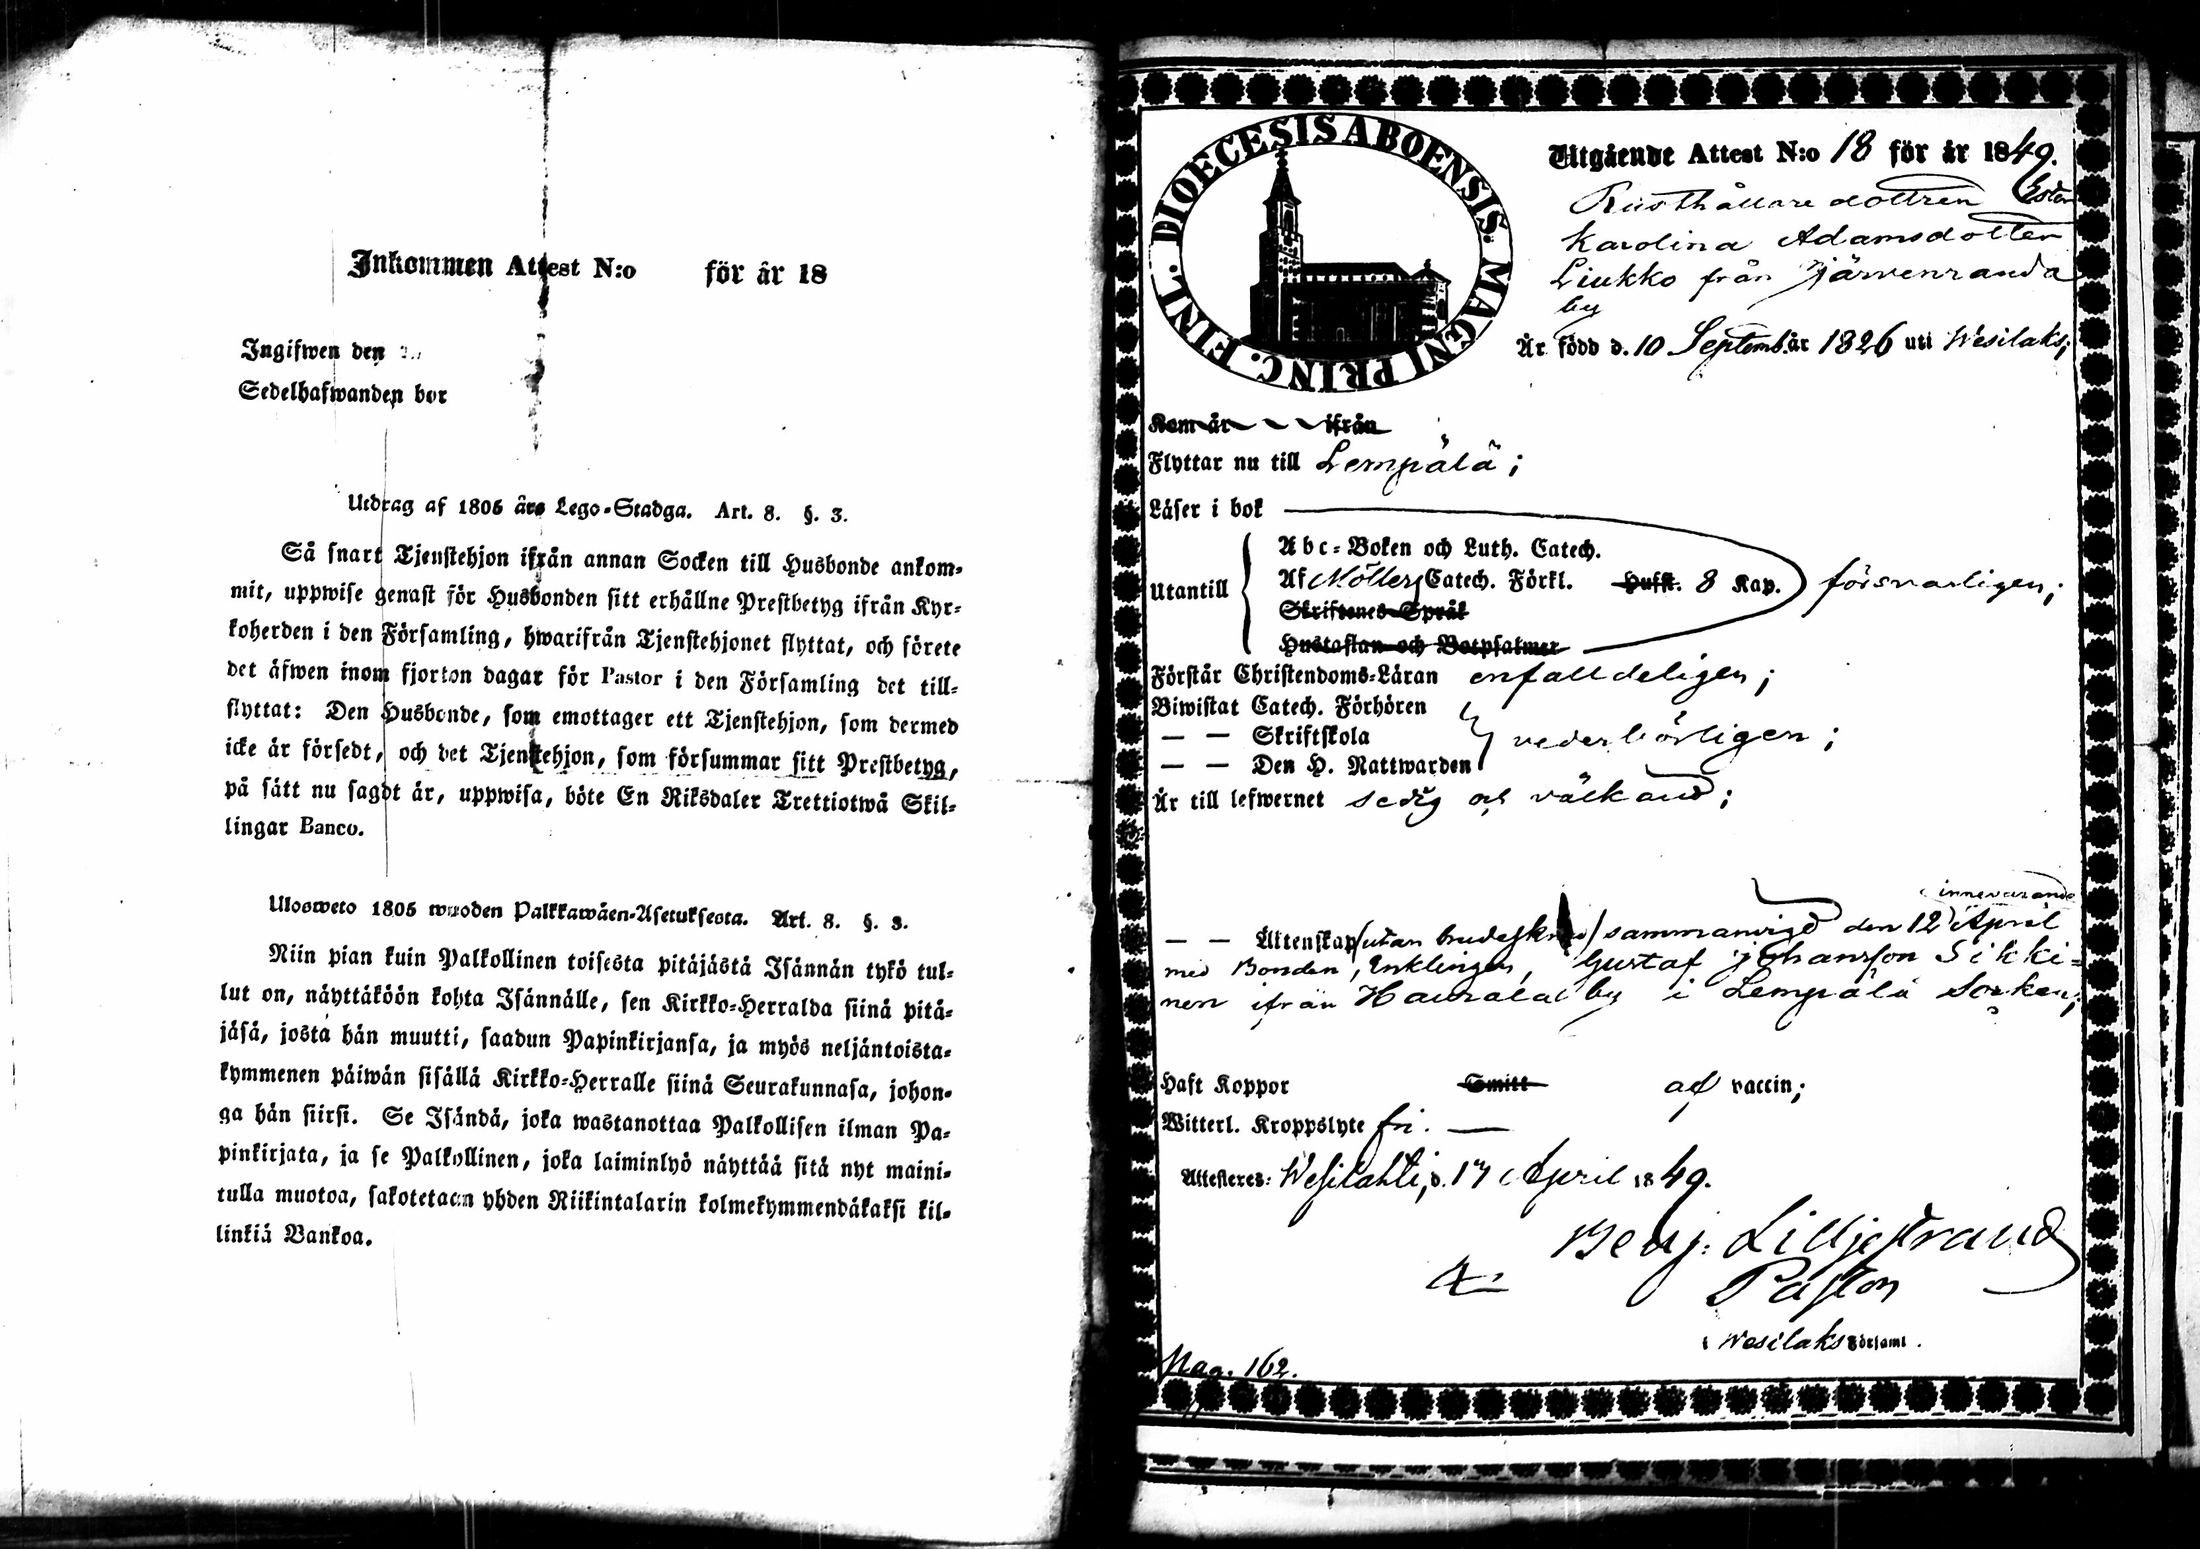 Inkommen Attest N:o för år 18
Ingifwen den
Sedelhafwanden bor
Utdrag af 1805 års Lego-Stadga. Art. 8. §. 3.
Så snart Tjenstehjon ifrån annan Socken till Husbonde ankom-
mit, uppwise genast för Husbonden sitt erhållne Prestbetyg ifrån Kyr-
koherden i den Församling, hwarifrån Tjenstehjonet flyttat, och förete
det äfwen inom fjorton dagar för Pastor i den Församling det till-
flyttat: Den Husbonde, som emottager ett Tjenstehjon, som dermed
icke är försedt, och det Tjenstehjon, som försummar sitt Prestbetyg,
på sätt nu sagdt är, uppwisa, böte En Riksdaler Trettiotwå Skil-
lingar Banco.
Ulosweto 1805 wuoden Palkkawäen-Asetuksesta. Art. 8. §. 3.
Niin pian kuin Palkollinen toisesta pitäjästä Isännän tykö tul-
lut on, näyttäköön kohta Isännälle, sen Kirkko-Herralda siinä pitä-
jäsä, josta hän muutti, saadun Papinkirjansa, ja myös neljäntoista-
kymmenen päiwän sisällä Kirkko-Herralle siinä Seurakunnasa, johon-
ga hän siirsi. Se Isändä, joka wastanottaa Palkollisen ilman Pa-
pinkirjata, ja se Palkollinen, joka laiminlyö näyttää sitä nyt maini-
tulla muotoa, sakotetaan yhden Riikintalarin kolmekymmendäkaksi kil-
linkiä Bankoa.
DIOECESIS ABOENSIS. MAGNI PRINC. FINL.
Utgående Attest N:o 18 för år 1849.
Rusthållare dottren
Karolina Adamsdotter
Liukko från Järvenranda
by
Är född d. 10 Septemb. år 1826 uti Wesilaks;
Kom år ifrån
Flyttar nu till Lempälä;
Läser i bok
Abc-Boken och Luth. Catech.
Utantill Af Möllers Catech. Förkl. Husst. 8 Kap. försvarligen;
Skriftenes Språk
Hustaflan och Botpsalmer
Förstår Christendoms-Läran enfalldeligen;
Biwistat Catech. Förhören
— — Skriftskola vederbörligen;
— — Den H. Nattwarden
Är till lefwernet sedig och välkänd;
innevarande
— — Äktenskap sammanvigd den 12 April
med Bonden, Enklingen, Gustaf Johansson Sikki=
nen ifrån Hauralal by i Lempälä Socken;
Haft Koppor Smitt af vaccin;
Witterl. Kroppslyte fri. —
Attesteres: Wesilahti, d. 17 April 1849.
Benj. Lilljestrand
Pastor
i Wesilaks Församl.
Pag. 162.